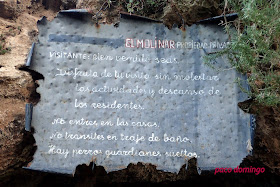 EL MOLINAR PROPIEDAD PRIVADA
VISITANTE: BIEN VENIDO SEAS.
Disfruta de tu visita sin molestar
las actividades y descanso de
los residentes.
no entres en las casas.
no transites en traje de baño.
Hay perros guardianes sueltos.
paca domingo